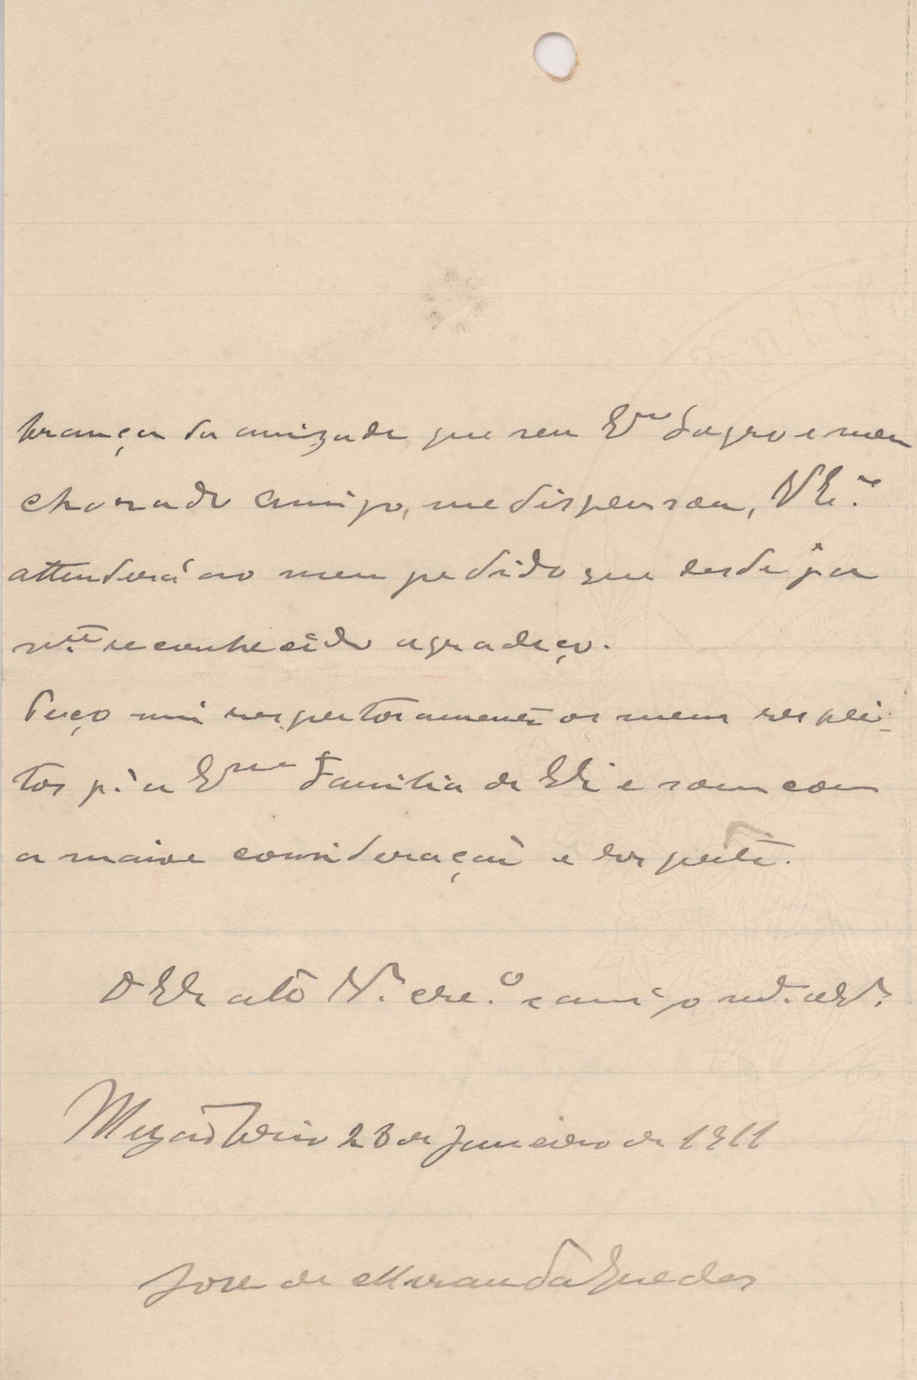 brança da amizade que seu Ex.mo Sogro e meu
chorado amigo, me dispensou, V Ex.ª
attenderá ao meu pedido que desde já
m.to reconhecido agradeço.
Peço mui respeitosamente os meus respei-
tos p.ª a Ex.ma Familia de V Ex.ª e sou com
a maior consideração e respeito.
D V Ex.ª att.º V.or cre.º e amigo
Mezão Frio 23 de Janeiro de 1911
José de Miranda Guedes